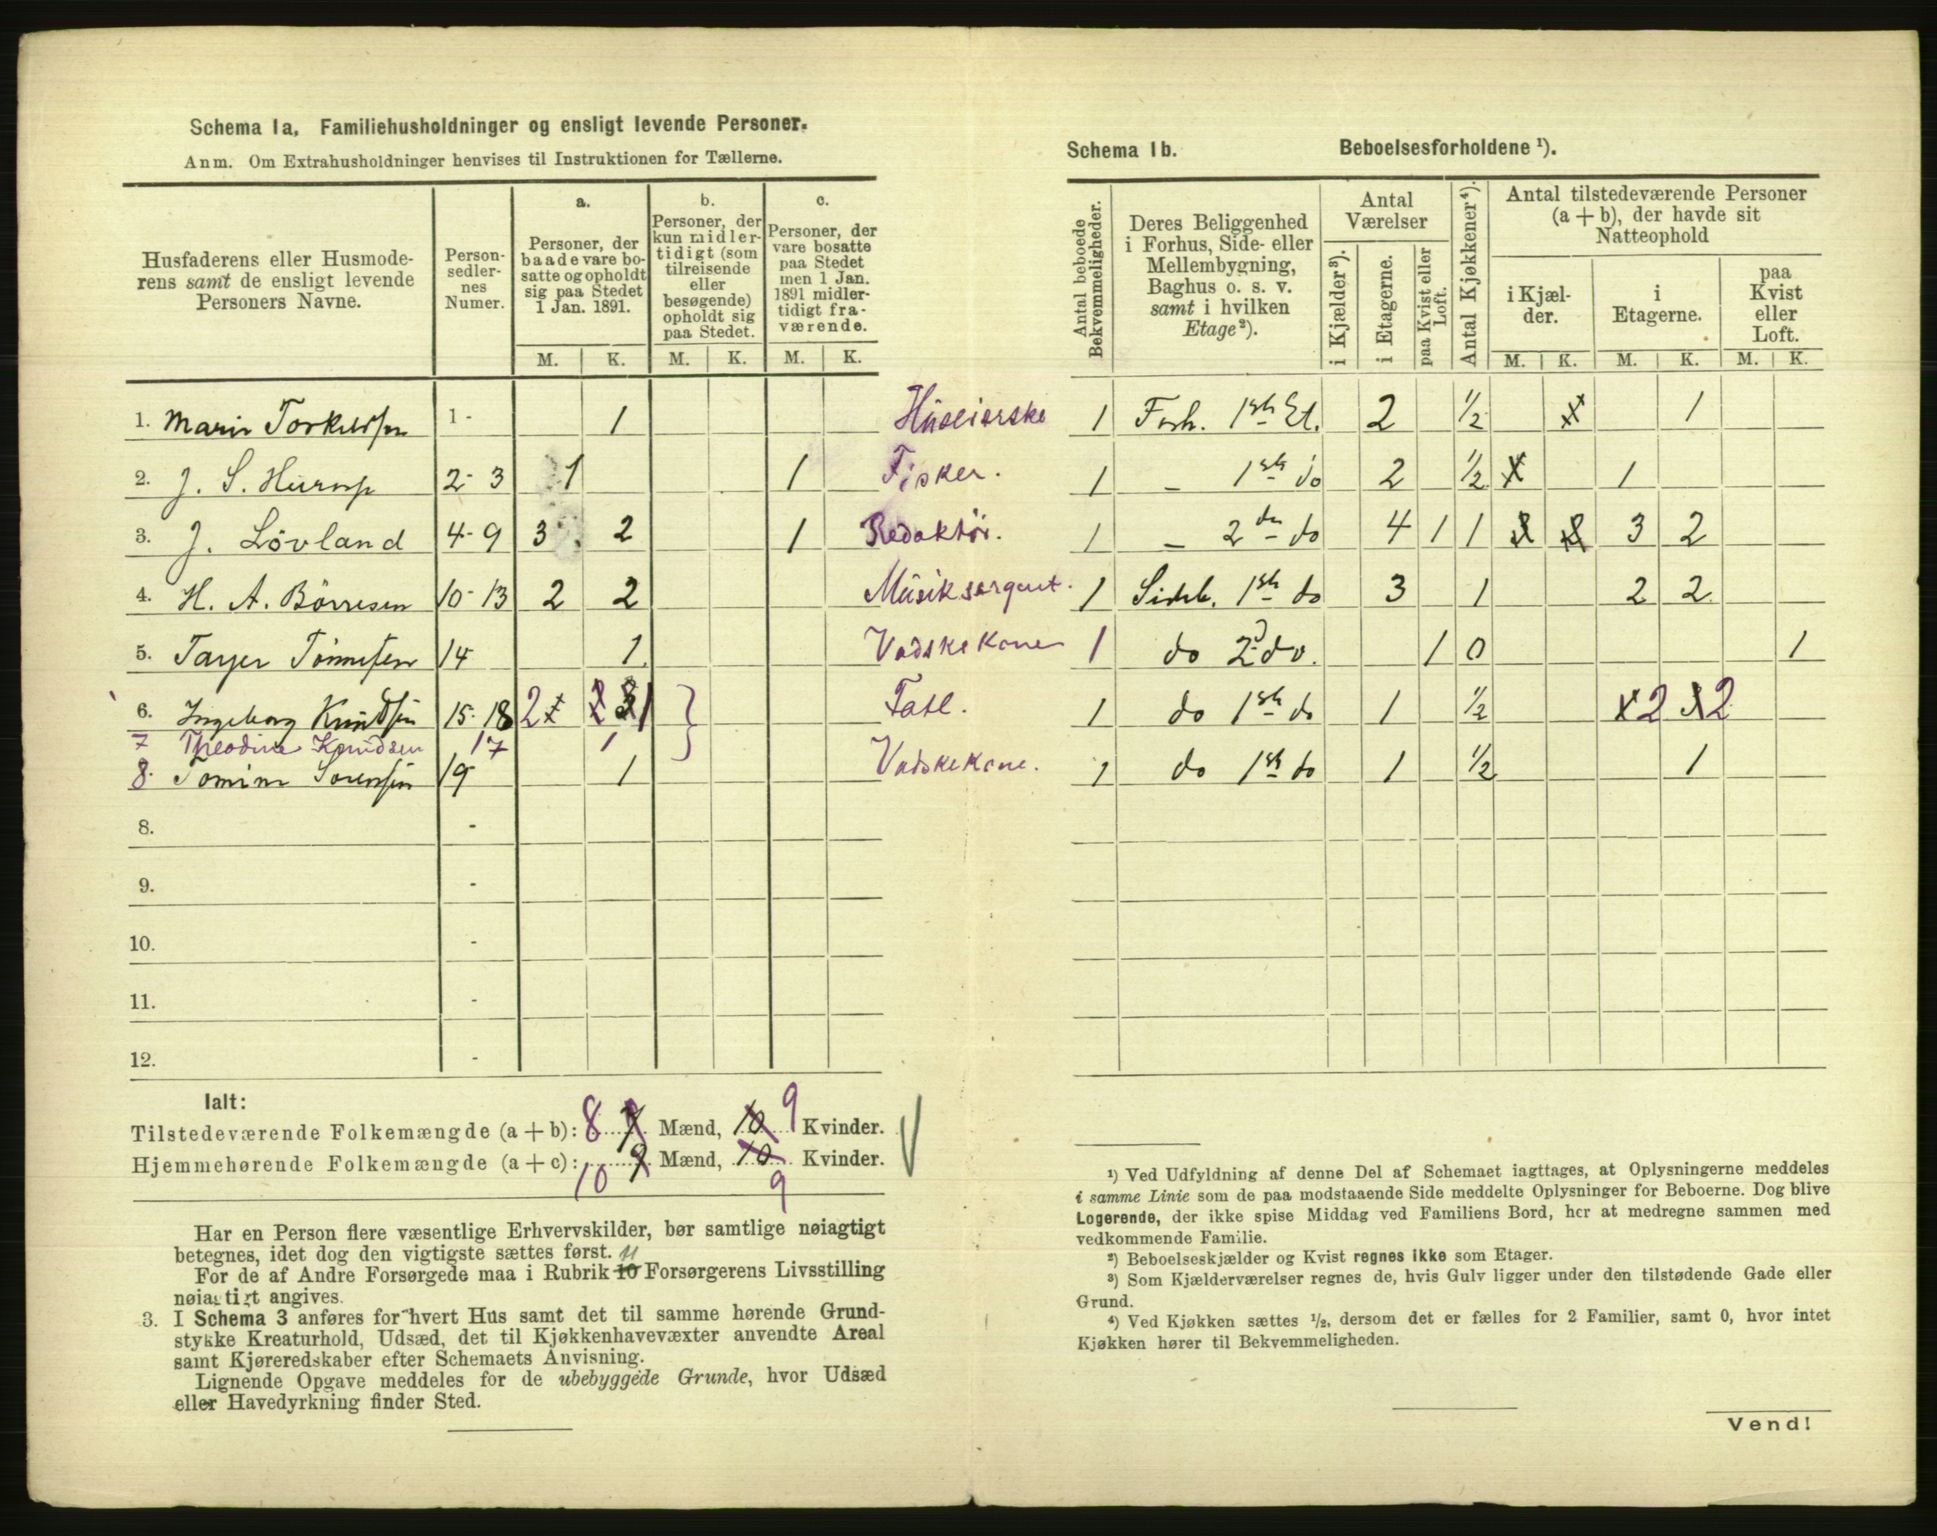 Schema 1a. Familiehusholdninger og ensligt levende Personer.
Anm. Om Extrahusholdninger henvises til Instruktionen for Tællerne.
Husfaderens eller Husmoderens samt de ensligt levende Personers Navne.
Personsedlernes Numer.
a. Personer, der baade vare bosatte og opholdt sig paa Stedet 1 Jan. 1891.
b. Personer, der kun midlertidigt (som tilreisende eller besøgende) opholdt sig paa Stedet.
c. Personer, der vare bosatte paa Stedet men 1 Jan. 1891 midlertidigt fraværende.
M. K. M. K. M. K.
1. Marie Torkildsen 1 - 1 
2. J. S. Hurup 2 - 3 1 1 Fisker.
3. J. Lövland 4 - 9 3 2 1 Redaktör.
4. H. A. Börresen 10 - 13 2 2 Musiksergent.
5. Tarjer Tönnesen 14 1 Vadskekone
6. Ingeborg Knudsen 15 - 18 2 1 Fatl.
7 Theodine Knudsen 17 1
8. Tomine Sörensen 19 1 Vadskekone.
8. -
9. -
10. -
11. -
12. -
Ialt:
Tilstedeværende Folkemængde (a + b): 8 Mænd, 10 9 Kvinder.
Hjemmehørende Folkemængde (a + c): 10 9 Mænd, 10 9 Kvinder.
Har en Person flere væsentlige Erhvervskilder, bør samtlige nøiagtigt
betegnes, idet dog den vigtigste sættes først.
For de af Andre Forsørgede maa i Rubrik 10 11 Forsørgerens Livsstilling
nøiagtigt angives.
3. I Schema 3 anføres for hvert Hus samt det til samme hørende Grund-
stykke Kreaturhold, Udsæd, det til Kjøkkenhavevæxter anvendte Areal
samt Kjøreredskaber efter Schemaets Anvisning.
Lignende Opgave meddeles for de ubebyggede Grunde, hvor Udsæd
eller Havedyrkning finder Sted.
Schema 1b. Beboelsesforholdene ¹).
Antal beboede Bekvemmeligheder.
Deres Beliggenhed i Forhus, Side- eller Mellembygning, Baghus o. s. v. samt i hvilken Etage ²).
Antal Værelser
i Kjælder ³).
i Etagerne.
paa Kvist eller Loft.
Antal Kjøkkener ⁴).
Antal tilstedeværende Personer (a + b), der havde sit Natteophold
i Kjælder.
i Etagerne.
paa Kvist eller Loft.
M. K. M. K. M. K.
1 Forh. 1ste Et. 2 ½ 1
1 - 1ste do 2 ½ 1
1 - 2den do 4 1 1 3 2
1 Sideb. 1ste do 3 1 2 2
1 do 2d do. 1 0 1
1 do 1ste do 1 ½ 2 2
1 do 1ste do 1 ½ 1
¹) Ved Udfyldning af denne Del af Schemaet iagttages, at Oplysningerne meddeles
i samme Linie som de paa modstaaende Side meddelte Oplysninger for Beboerne. Dog blive
Logerende, der ikke spise Middag ved Familiens Bord, her at medregne sammen med
vedkommende Familie.
²) Beboelseskjælder og Kvist regnes ikke som Etager.
³) Som Kjælderværelser regnes de, hvis Gulv ligger under den tilstødende Gade eller
Grund.
⁴) Ved Kjøkken sættes ½, dersom det er fælles for 2 Familier, samt 0, hvor intet
Kjøkken hører til Bekvemmeligheden.
Vend!